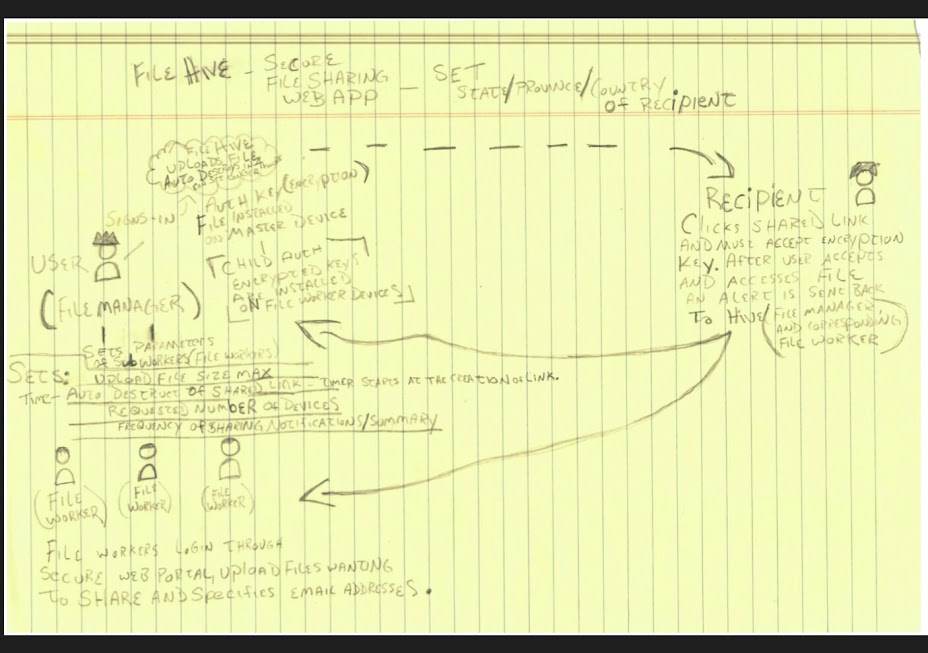 FILE HIVE – SECURE
FILE SHARING
WEB APP –
SET
STATE/PROVINCE/COUNTRY
OF RECIPIENT
FILE HIVE
UPLOADS FILE
AUTO DESTRUCTS IN
SIGNS-IN
AUTH KEY (ENCRYPTION)
FILE INSTALLED
ON MASTER DEVICE
CHILD AUTH
ENCRYPTED KEYS
ARE INSTALLED
ON FILE WORKER DEVICES
USER
(FILE MANAGER)
RECIPIENT
CLICKS SHARED LINK
AND MUST ACCEPT ENCRYPTION
KEY. AFTER USER ACCEPTS
AND ACCESSES FILE
AN ALERT IS SENT BACK
TO HIVE/(FILE MANAGER
AND CORRESPONDING
FILE WORKER)
SETS PARAMETERS
OF SUB WORKERS (FILE WORKERS)
SETS:
UPLOAD FILE SIZE MAX
TIME– AUTO DESTRUCT OF SHARED LINK – TIMER STARTS AT THE CREATION OF LINK.
REQUESTED NUMBER OF DEVICES
FREQUENCY OF SHARING NOTIFICATIONS/SUMMARY
(FILE
WORKER)
(FILE
WORKER)
(FILE
WORKER)
FILE WORKERS LOGIN THROUGH
SECURE WEB PORTAL, UPLOAD FILES WANTING
TO SHARE AND SPECIFIES EMAIL ADDRESSES.